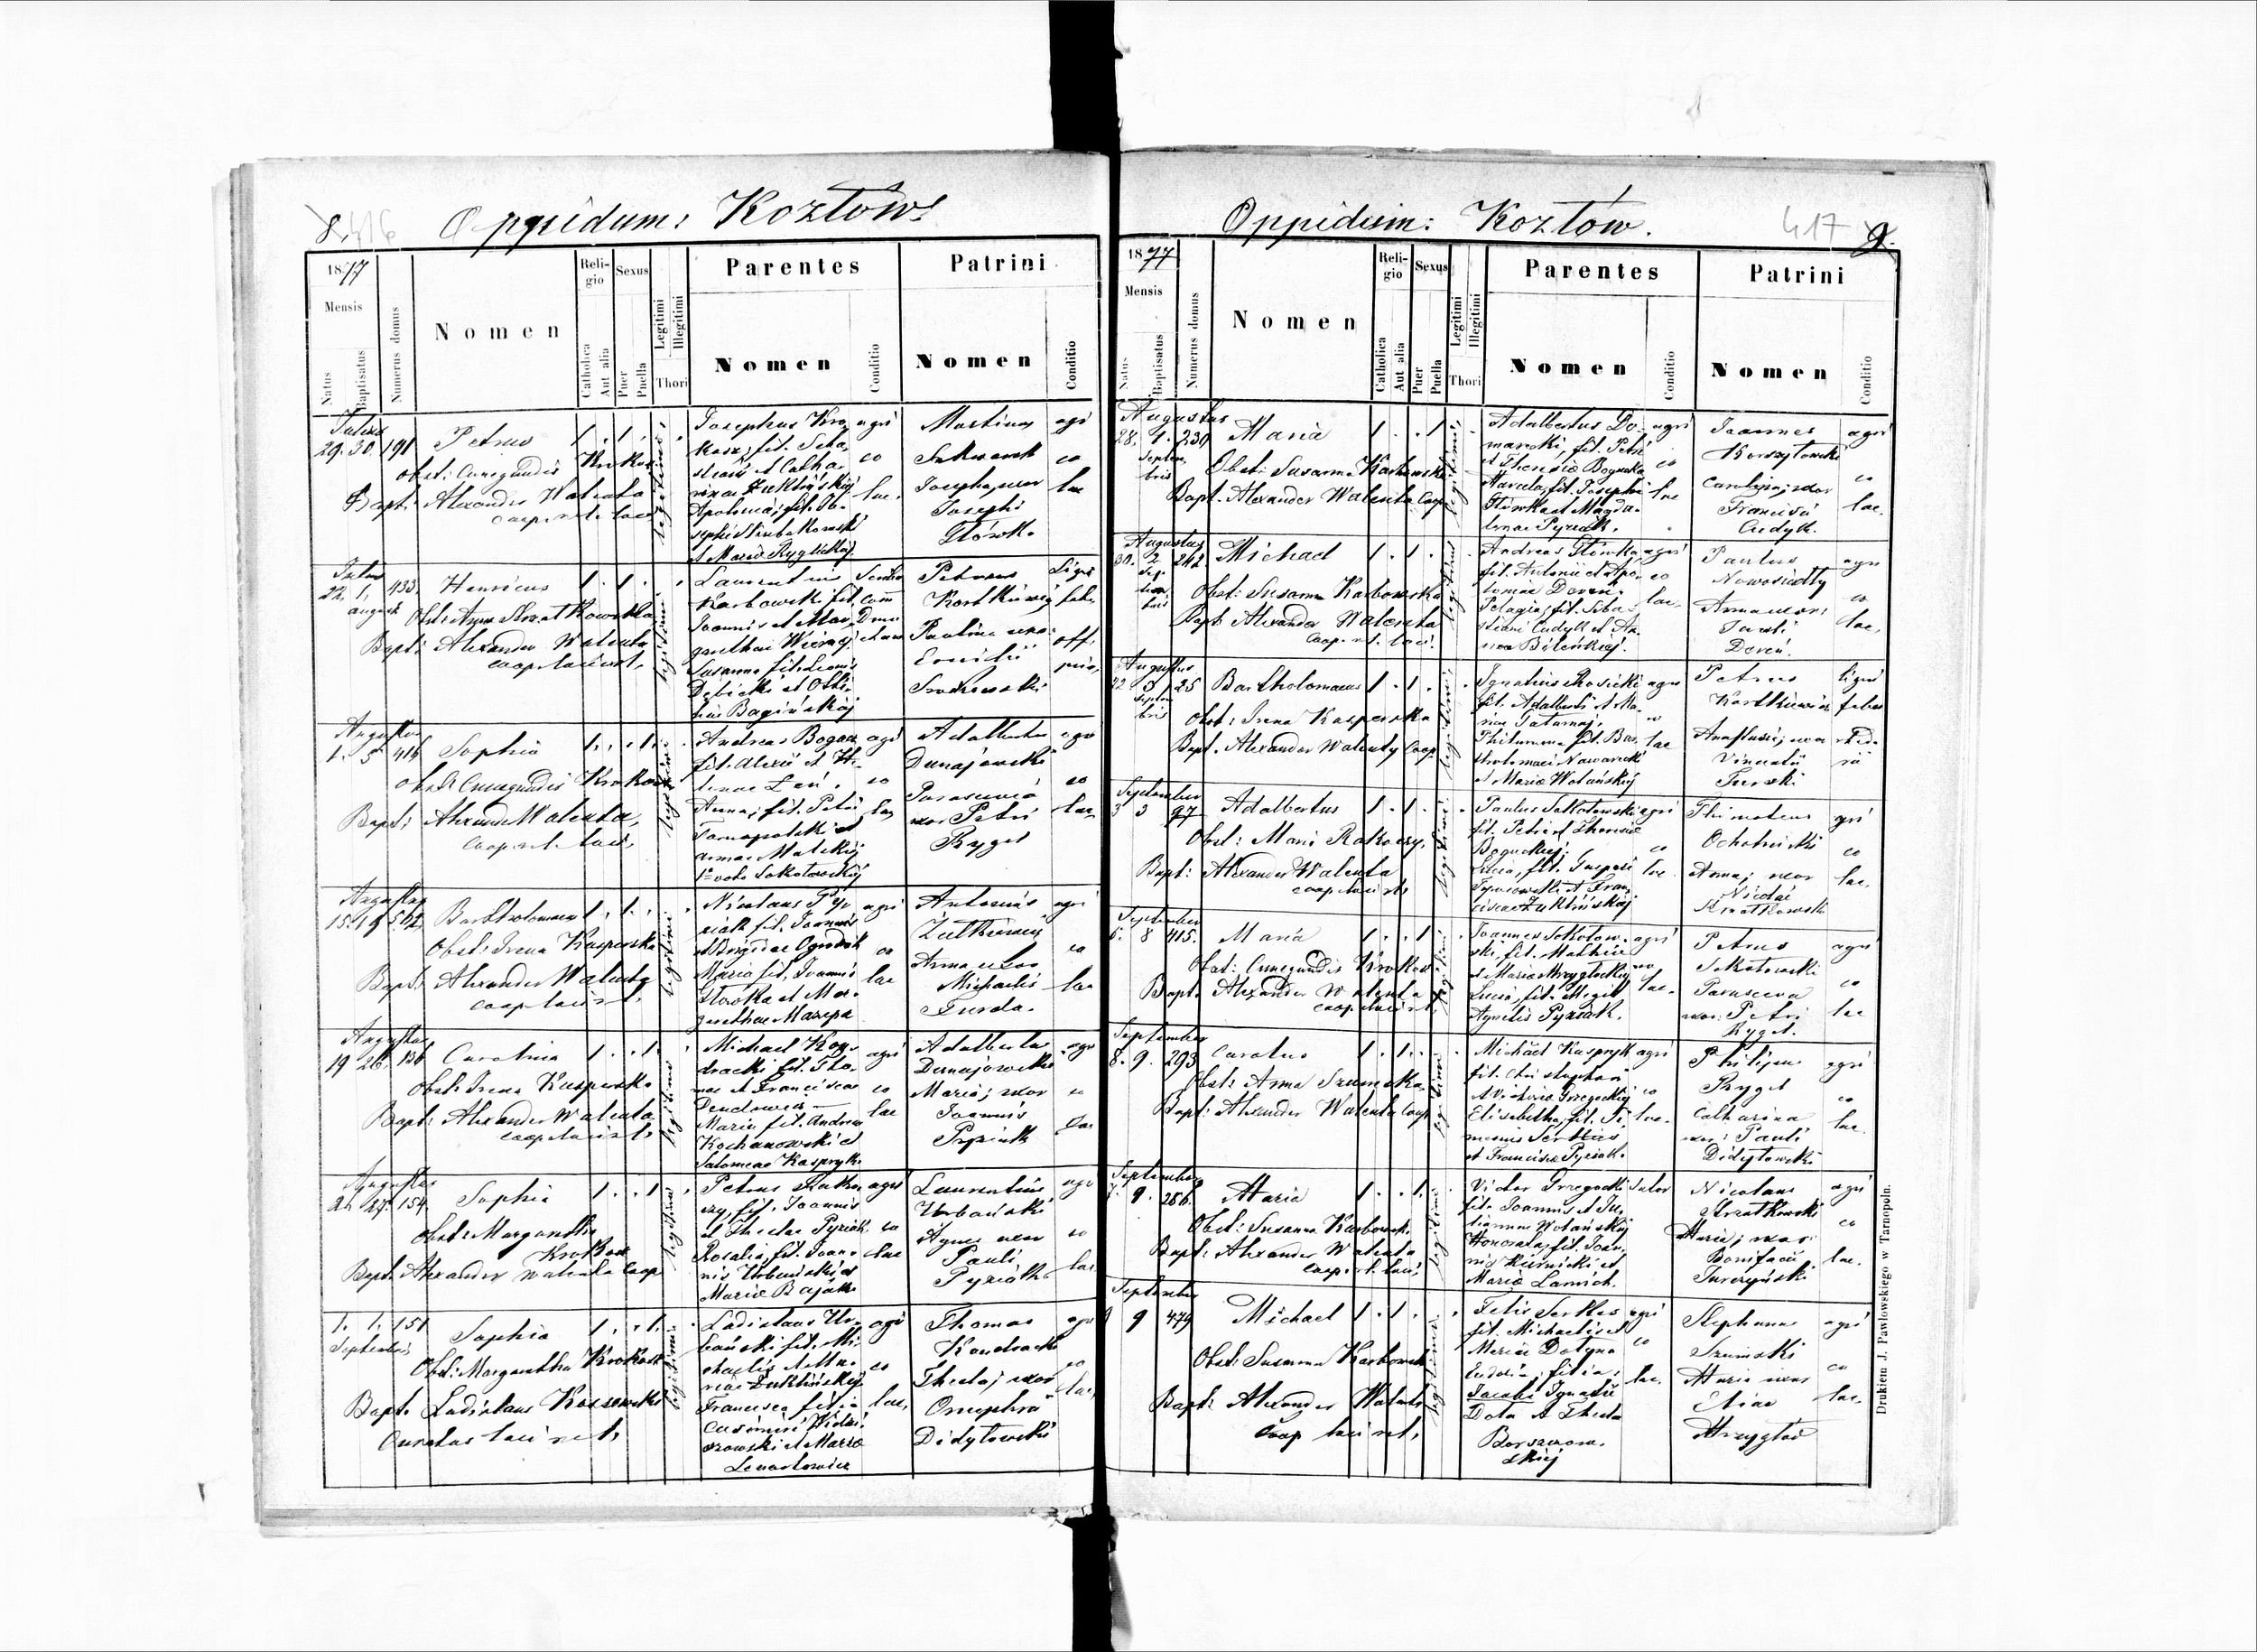 8. 416 Oppidum: Kozłów
1877
Mensis
Natus
Baptisatus
Numerus domus
Nomen
Religio
Catholica
Aut alia
Sexus
Puer
Puella
Legitimi
Illegitimi
Thori
Parentes
Nomen
Conditio
Patrini
Nomen
Conditio
Julius
29. 30. 191 Petrus 1. 1.
Obst: Cunegundis Krokosz
Bapt: Alexander Walenta
coop. r. l. loci
legitimi
Josephus Kro-
kosz, fil. Seba-
stiani et Catha-
rinae Zuklińskiej
Apolonia, fil. Jo-
sephi Skrabakowski
et Maria Ryglickiej
agri
co
lae.
Martinus
Josepha, uxor
Josephi
Główk.
agri
co
lae
Julius
22. 1. 433. Henricus 1. 1.
august
Obst: Anna Strzałkowska
Bapt: Alexander Walenta
coop. loci r. l.
legitimi
Laurentius
Karbowski fil.
Joannis et Mar-
garethae
Susanna fil.
Dębicki et Otti-
liae Bagińskiej
Petrus
Kortkiewicz
Paulina uxor
Emilii
ligni
fab.
off.
Augustus
1. 5 416 Sophia 1. . 1.
Obst: Cunegundis Krokosz
Bapt: Alexander Walenta,
coop. r. l. loci,
legitimi
Andreas Bogacz
fil. Alexii et He-
lenae Łań.
Anna, fil. Petri
Tarnopolski et
Annae Malskiej
1º voto Sokołowskiej
agri
co
lae
Adalbertus
Dunajowski
Parascevia
uxor Petri
Rygel
agri
co
lae
Augustus
15. 19 512. Bartholomaeus 1. 1.
Obst: Irena Kasperska
Bapt: Alexander Walenty
coop. loci r. l.
legitimi
Nicolaus Pyz-
iak fil. Joannis
et Brigidae Ogrodnik
Maria fil. Joannis
Głowka et Mar-
garethae Mazepa
agri
co
lae
Antonius
Zułkiewicz
Anna uxor
Michaelis
Furda.
agri
co
lae
Augustus
19 26. 136 Carolina 1. . 1.
Obst: Irena Kasperska
Bapt: Alexander Walenta
coop. loci r. l.
legitimi
Michael Kon-
dracki fil. Tho-
mae et Franciscae
Maria fil. Andreae
Kochanowski et
Salomeae Kaspryk.
agri
co
lae
Adalbertus
Dunajowski
Maria, uxor
Joannis
Pyziak
agri
co
lae
Augustus
21. 27. 154. Sophia 1. . 1.
Obst: Margaretha
Krokosz
Bapt. Alexander Walenta coop
legitimi
Petrus Rako-
czy, fil. Joannis
et Theclae Pyziak.
Rosalia, fil. Joan-
nis Urbański et
Maria Bajak
agri
co
lae
Laurentius
Urbański
Agnes uxor
Pauli
Pyziak
agri
co
lae
1. 1. 151 Sophia 1. . 1.
Septembris
Obst: Margaretha Krokosz
Bapt. Ladislaus Kossowski
Curatus loci r. l.
legitimi
Ladislaus Ur-
bański fil. Mi-
chaelis et Ma-
riae Zuklińskiej
Francisca filia
Casimiri
et Maria
Lenartowicz
agri
co
lae,
Thomas
Kondracki
Thecla, uxor
Onuphrii
Didytowski
agri
co
lae,
Oppidum: Kozłów. 417 9.
1877
Mensis
Natus
Baptisatus
Numerus domus
Nomen
Religio
Catholica
Aut alia
Sexus
Puer
Puella
Legitimi
Illegitimi
Thori
Parentes
Nomen
Conditio
Patrini
Nomen
Conditio
Augustus
28. 1. 230 Maria 1. . 1
Septem-
bris
Obst: Susanna Karbowska
Bapt. Alexander Walenta Coop
legitimi
Adalbertus Do-
marski, fil. Petri
et Theresiae Bogucka
Marcela, fil. Josephi
Główka et Magda-
lenae Pyziak.
agri
co
lae
Joannes
Korzytowski
Carolina, uxor
Francisci
Cudyk.
agri
co
lae.
Augustus
30. 2 242. Michael 1. 1.
Sep-
tem-
bris
Obst: Susanna Karbowska
Bapt Alexander Walenta
Coop. r. l. loci.
legitimi
Andreas Główka
fil. Antonii et Apo-
loniae Doren.
Pelagia, fil. Seba-
stiani Cudyk et An-
nae Bileńkiej.
agri
co
lae.
Paulus
Nowosiedly
Anna uxor
Pauli
Doreń.
agri
co
lae,
Augustus
22 5 25 Bartholomaeus 1. 1.
Septem-
bris
Obst: Irena Kasperska
Bapt. Alexander Walenty Coop.
legitimi
Ignatius Rosicki
fil. Adalberti et Ma-
riae Tatarnaj.
Philumena fil. Bar-
tholomaei Nawarecki
et Maria Wolańskiej
agri
co
lae
Petrus
Kortkiewicz
Anastasia, uxor
Vincentii
Turski
ligni
faber
September
3 3 97 Adalbertus 1. 1.
Obst: Maria Rakoczy.
Bapt: Alexander Walenta
coop loci r. l.
legitimi
Paulus Sokołowski
fil. Petri et Theresiae
Boguckiej.
Lucia, fil. Gaspari
et Fran-
ciscae Zuklińskiej
agri
co
lae.
Thimoteus
Ochotnicki
Anna, uxor
Nicolai
Strzałkowski
agri
co
lae.
September
6. 8 415. Maria 1. . 1.
Obst: Cunegundis Krokosz
Bapt. Alexander Walenta
coop. loci r. l.
legitimi
Joannes Sokołow-
ski, fil. Mathiae
et Maria Mrygłockiej
Lucia, fil.
Agnetis Pyziak.
agri
co
lae.
Petrus
Sokołowski
Parasceva
uxor Petri
Rygel.
agri
co
lae
September
8. 9. 293 Carolus 1. 1.
Obst: Anna Szumska.
Bapt: Alexander Walenta Coop
legitimi
Michael Kaspryk
fil. Christophori
et Victoria Grzegockiej
Elisabetha, fil. Si-
meonis Serkies
et Francisca Pyziak.
agri
co
lae.
Philippus
Rygel
Catharina
uxor Pauli
Didytowski
agri
co
lae.
September
7. 9. 256. Maria 1. . 1.
Obst: Susanna Karbowsk.
Bapt: Alexander Walenta
coop. r. l. loci,
legitimi
Victor Grzegocki
fil. Joannis et Ju-
liannae Wolańskiej
Honorata, fil. Joan-
nis Kiernicki et
Maria Lamich.
sutor
Nicolaus
Strzałkowski
Maria, uxor
Bonifacii
Turczyński
agri
co
lae.
September
9 479 Michael 1. 1.
Obst: Susanna Karbowsk
Bapt: Alexander Walenta
Coop loci r. l.
legitimi
Felix Serkies
fil. Michaelis et
Maria Dotyna
Eudoxia, filia
Jacobi Ignatii
Dota et Thecla
Borszczow-
skiej
agri
co
lae.
Stephanus
Szumski
Maria uxor
Mrzygłod
agri
co
lae.
Drukiem J. Pawłowskiego w Tarnopolu.